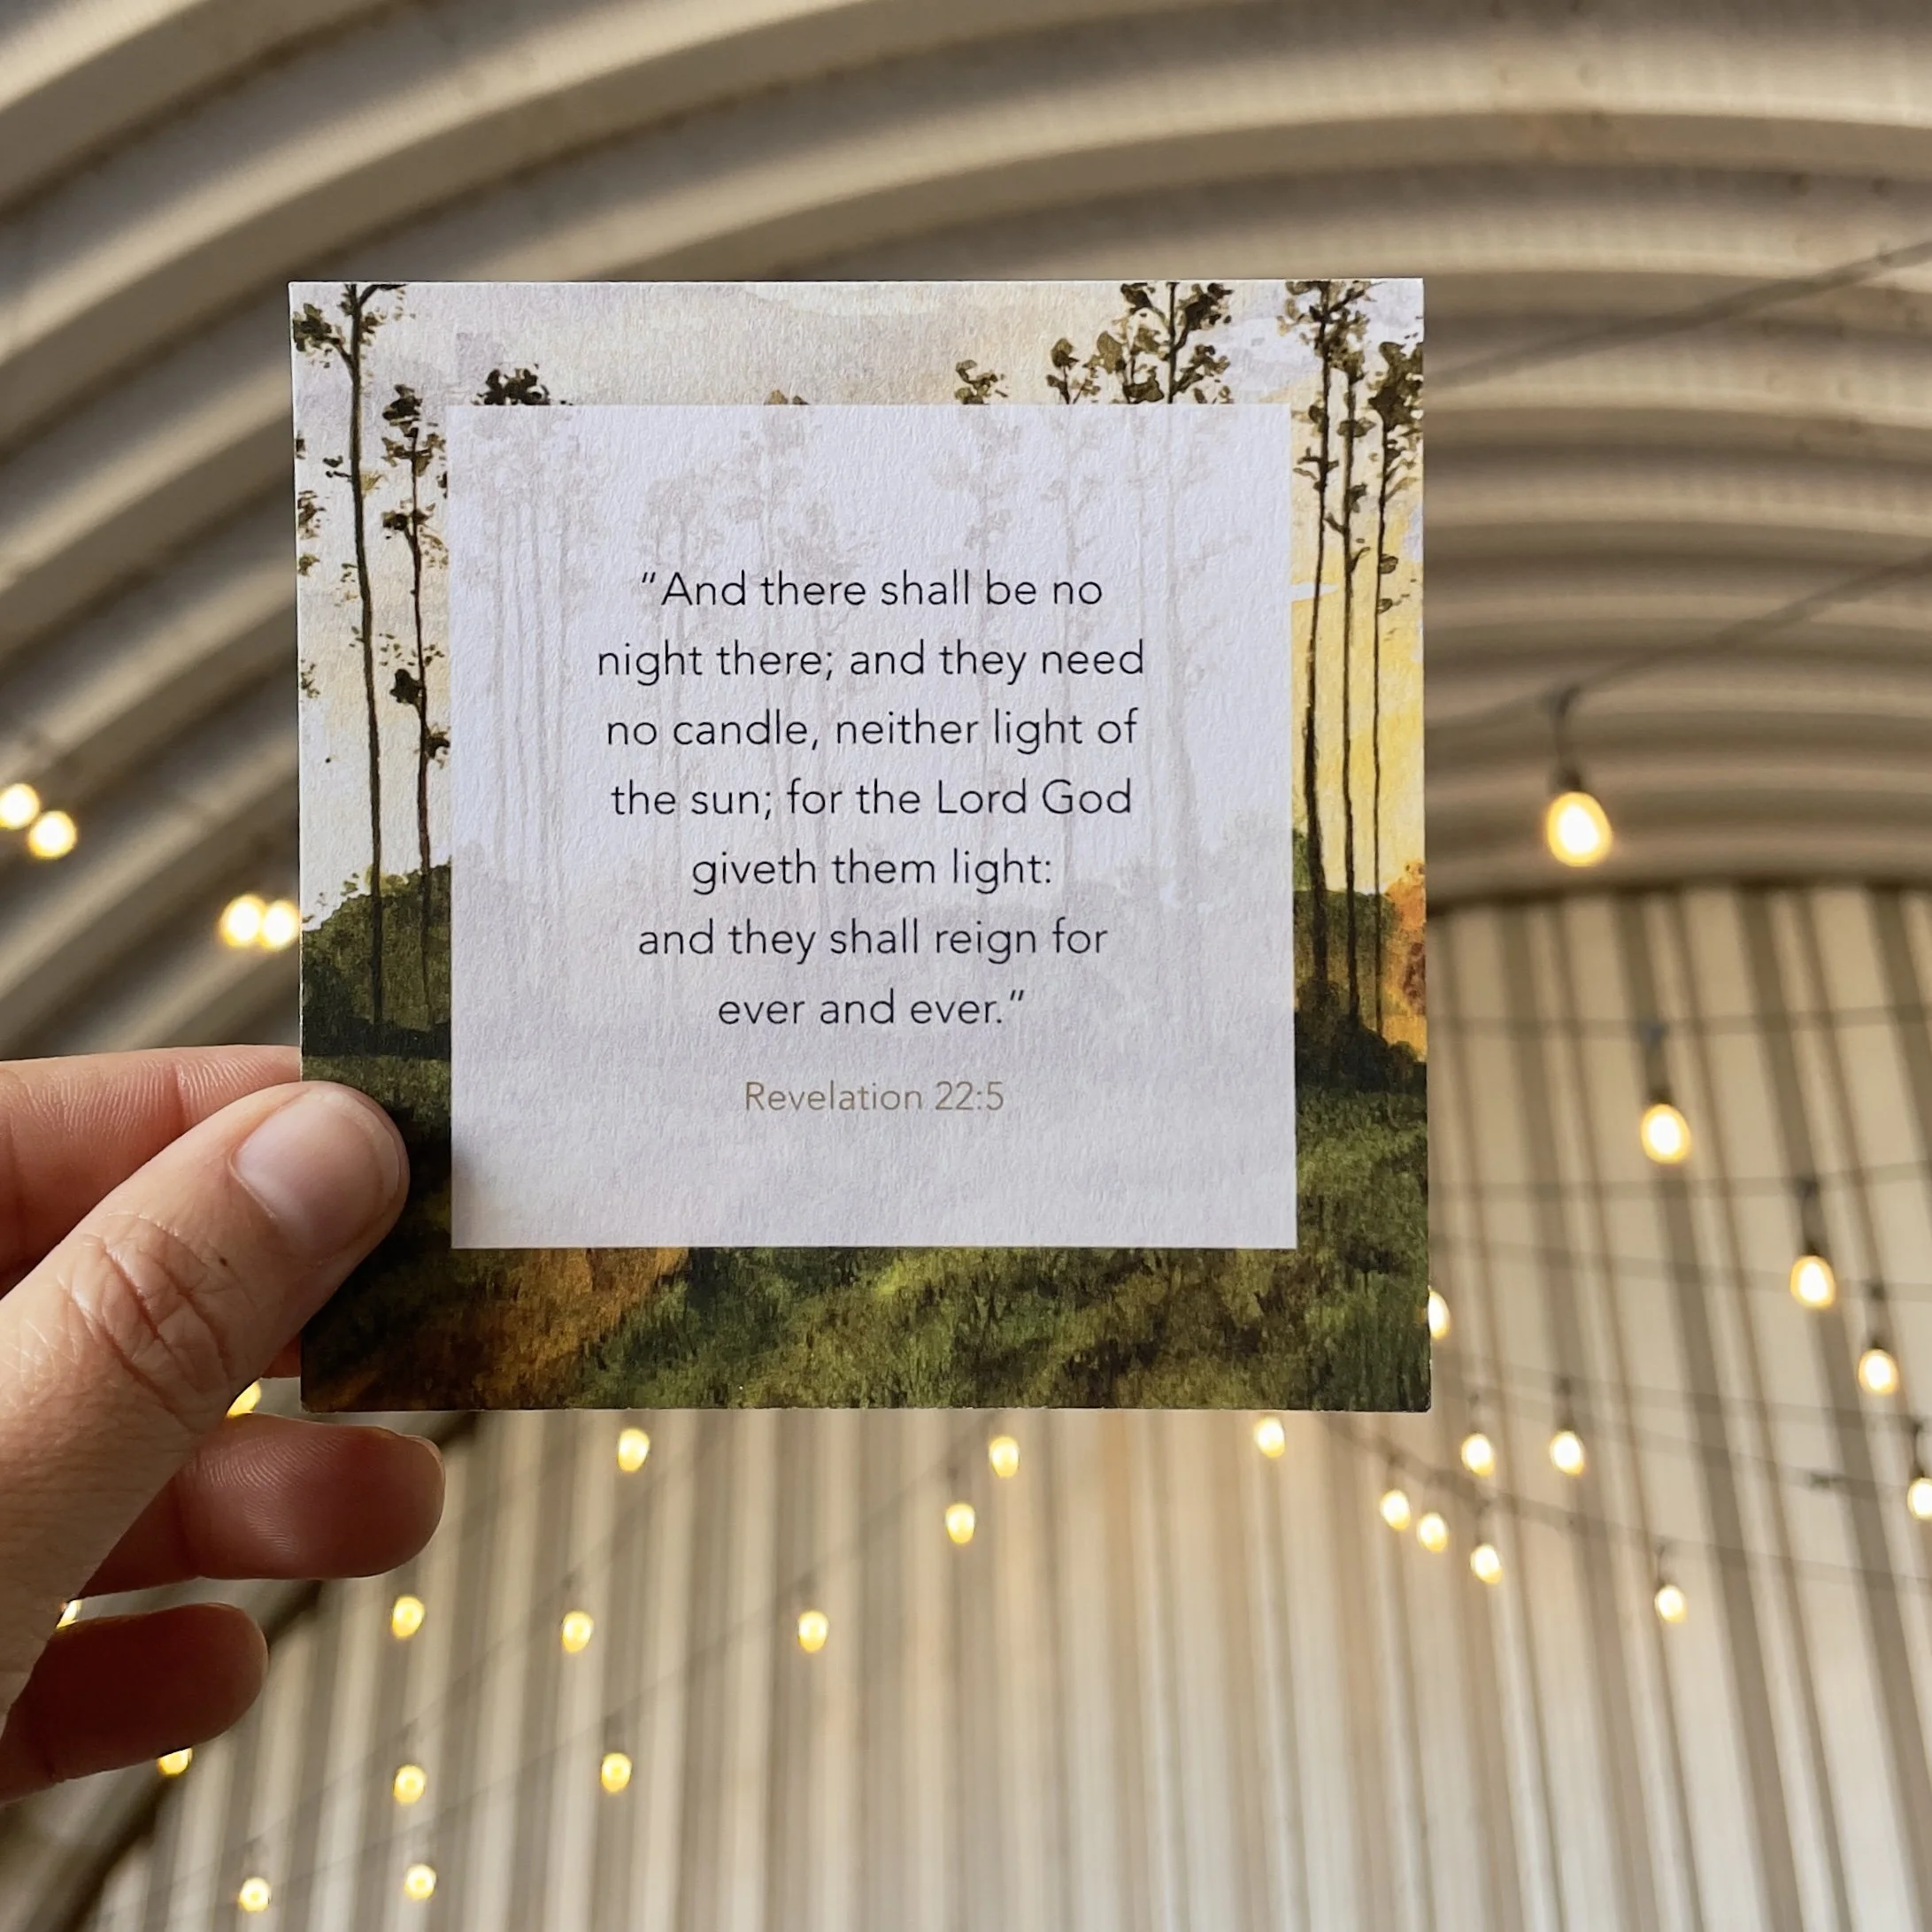 "And there shall be no
night there; and they need
no candle, neither light of
the sun; for the Lord God
giveth them light:
and they shall reign for
ever and ever."
Revelation 22:5